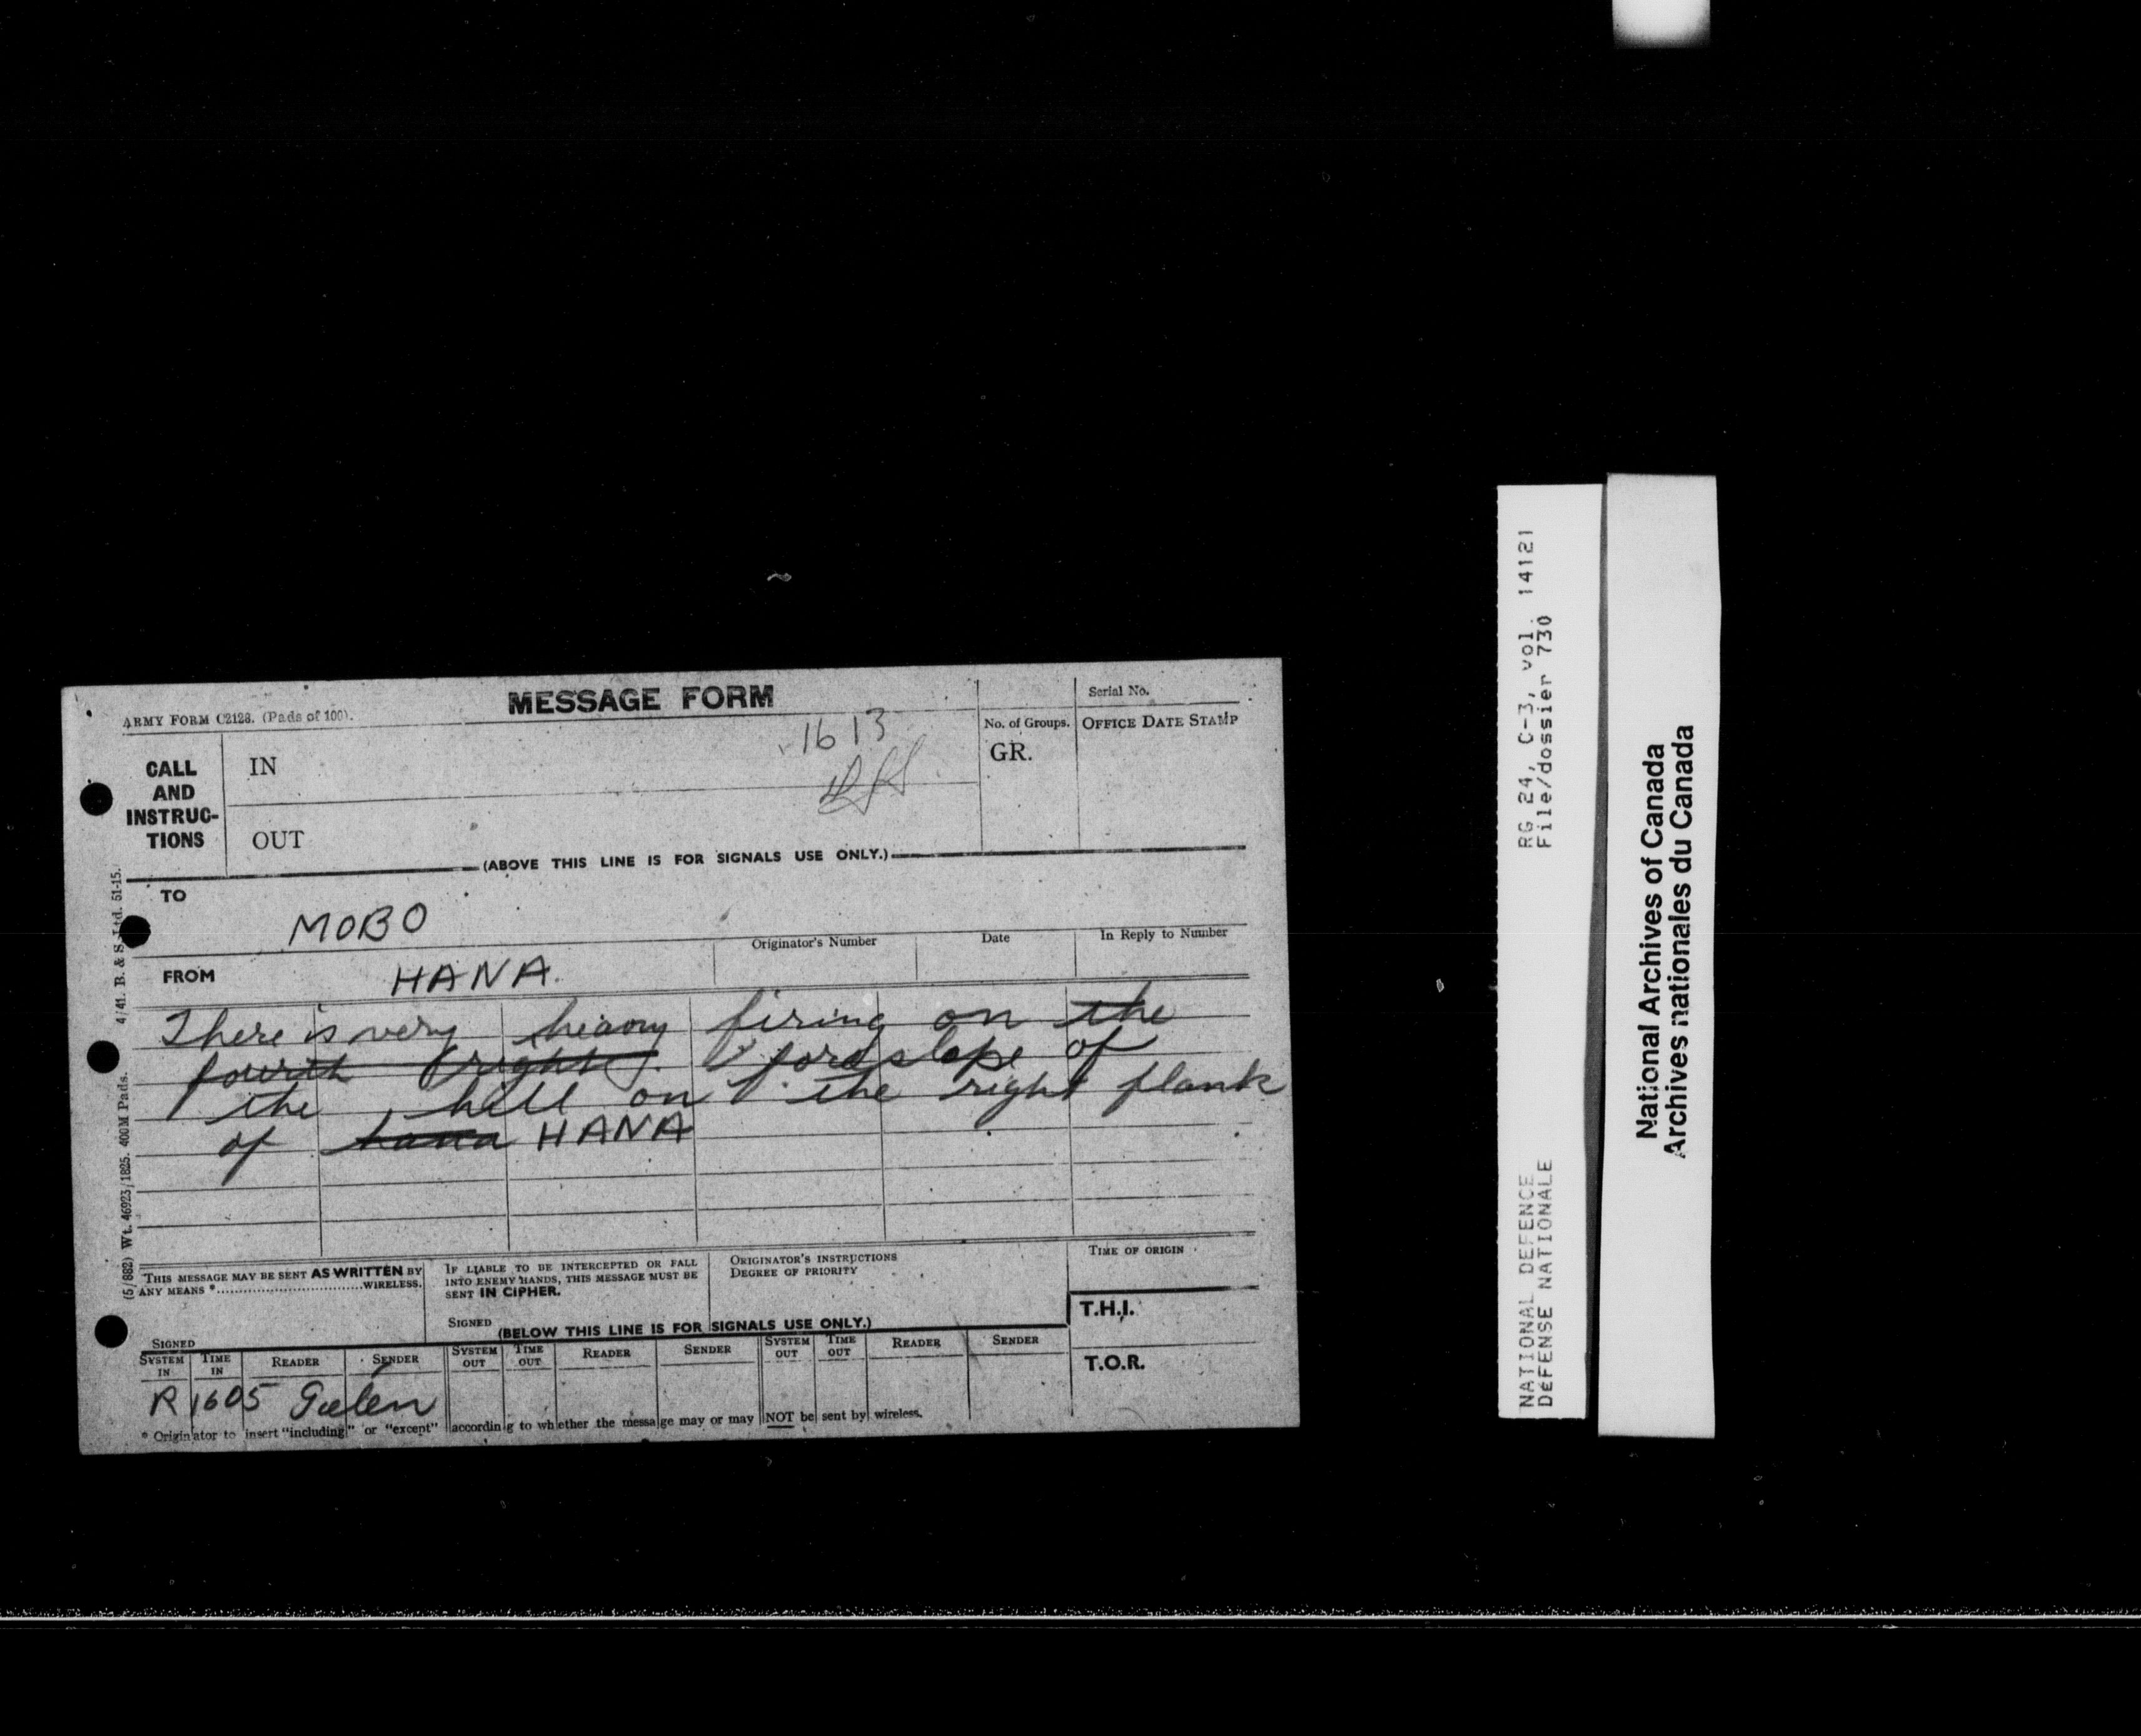 MESSAGE FORM
ARMY FORM C2128. (Pads of 100).
Serial No.
No. of Groups.
OFFICE DATE STAMP
1613
GR.
CALL
AND
INSTRUC-
TIONS
IN
OUT
(ABOVE THIS LINE IS FOR SIGNALS USE ONLY.)
TO
MOBO
Originator's Number
Date
In Reply to Number
FROM
HANA.
There is very heavy firing on the
fourth (right). ford slope of
the hill on the right flank
of hana HANA
THIS MESSAGE MAY BE SENT AS WRITTEN BY
ANY MEANS *..................WIRELESS.
SIGNED
IF LIABLE TO BE INTERCEPTED OR FALL
INTO ENEMY HANDS, THIS MESSAGE MUST BE
SENT IN CIPHER.
SIGNED
ORIGINATOR'S INSTRUCTIONS
DEGREE OF PRIORITY
TIME OF ORIGIN
T.H.I.
T.O.R.
(BELOW THIS LINE IS FOR SIGNALS USE ONLY.)
SYSTEM IN TIME IN READER SENDER SYSTEM OUT TIME OUT READER SENDER SYSTEM OUT TIME OUT READER SENDER
R 1605
* Originator to insert "including" or "except" according to whether the message may or may NOT be sent by wireless.
(5/882) Wt. 46923/1825. 400M Pads. 4/41. B. & S. Ltd. 51-15.
RG 24, C-3, vol. 14121
File/dossier 730
NATIONAL DEFENCE
DEFENSE NATIONALE
National Archives of Canada
Archives nationales du Canada